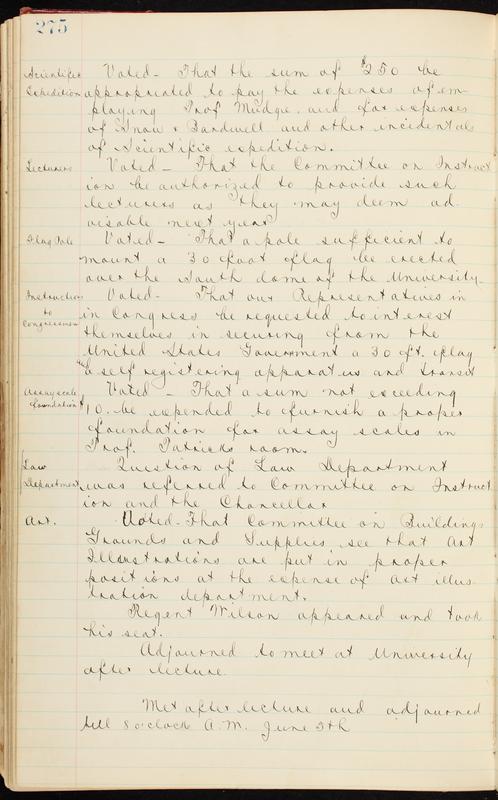 275
Scientific Voted - That the sum of $250 be
Expedition appropriated to pay the expenses of em-
ploying Prof Mudge and for expenses
of Snow & Bardwell and other incidentals
of Scientific expedition.
Lecturers Voted - That the Committee on Instruct
ion be authorized to provide such
lecturers as they may deem ad
visable next year
Flag Pole Voted - That a pole sufficient to
mount a 30 foot flag be erected
over the South dome of the University.
Instruction Voted - That our Representatives in
to in Congress be requested to interest
Congressmen themselves in securing from the
United States Government a 30 ft. flag
a self registering apparatus and transit
Assay scale Voted - That a sum not exceeding
foundation $10. be expended to furnish a proper
foundation for assay scales in
Prof. Patricks room.
Law Question of Law Department
Department was referred to Committee on Instruct
ion and the Chancellor
Art. Voted - That Committee on Buildings
Grounds and Supplies see that Art
Illustrations are put in proper
positions at the expense of art illus-
tration department.
Regent Wilson appeared and took
his seat.
Adjourned to meet at University
after lecture.
Met after lecture and adjourned
till 8 o'clock A.M. June 5th